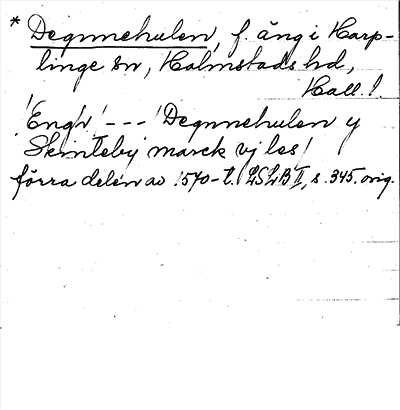 * Degnnehulen, f. äng i Harp-
linge sn, Halmstads hd,
Hall. !
'Engh' --- 'Degnnehulen y
Skintleby marck vj les'
förra delen av 1570-t. LSLB II, s. 345. orig.